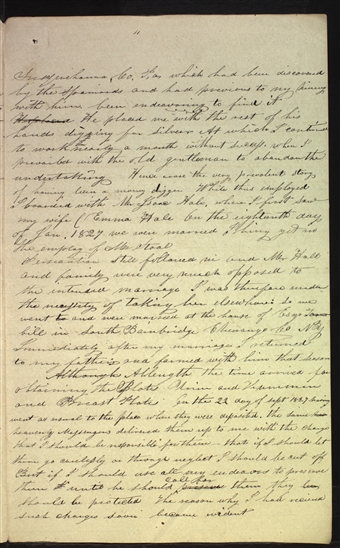 Susquehanna, Co. Pa. which had been discovered
by the Spaniards and had previous to my joining
with him been endeavouring to find it
He placed me with the rest of his
hands digging for silver At which I continued
to work nearly a month without success when I
prevailed with the old gentleman to abandon the
undertaking Hence arose the very prevalent story
of having been a money digger While thus employed
I boarded with Mr Isaac Hale, where I first saw
my wife (Emma Hale On the eighteenth day
of Jan. 1827 we were married I being yet in
the employ of Mr Stoal
Persecution still followed me and Mr Hall
and family were very much opposed to
the intended marriage I was therefore under
the necessity of taking her elsewhere So we
went to and were married at the house of Esqr Tarbill
in South Bainbridge Chenango Co N.Y.
Immediately after my marriage I returned
to my fathers and farmed with him that season
At length the time arrived for
obtaining the Plates Urim and Thummim
and Breast Plate On the 22 day of Sept 1827 having
went as usual to the place where they were deposited. The same
heavenly Messenger delivered them up to me with the charge
that I should be responsible for them that if I should let
them go carelessly or through neglect I should be cut off
But if I should use all my endeavors to preserve
them until he should call for them they
should be protected The reason why I had received
such charges soon became evident